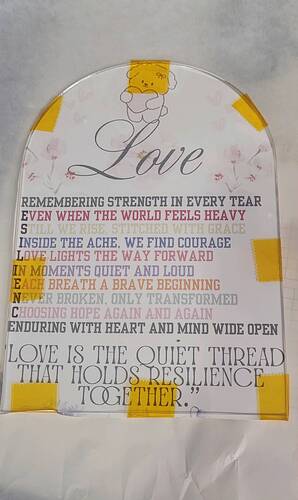 Love
REMEMBERING STRENGTH IN EVERY TEAR
EVEN WHEN THE WORLD FEELS HEAVY
STILL WE RISE, STITCHED WITH GRACE
INSIDE THE ACHE, WE FIND COURAGE
LOVE LIGHTS THE WAY FORWARD
IN MOMENTS QUIET AND LOUD
EACH BREATH A BRAVE BEGINNING
NEVER BROKEN, ONLY TRANSFORMED
CHOOSING HOPE AGAIN AND AGAIN
ENDURING WITH HEART AND MIND WIDE OPEN
"LOVE IS THE QUIET THREAD
THAT HOLDS RESILIENCE
TOGETHER.”